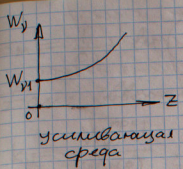 Wν
Wν1
0
z
усиливающая
среда